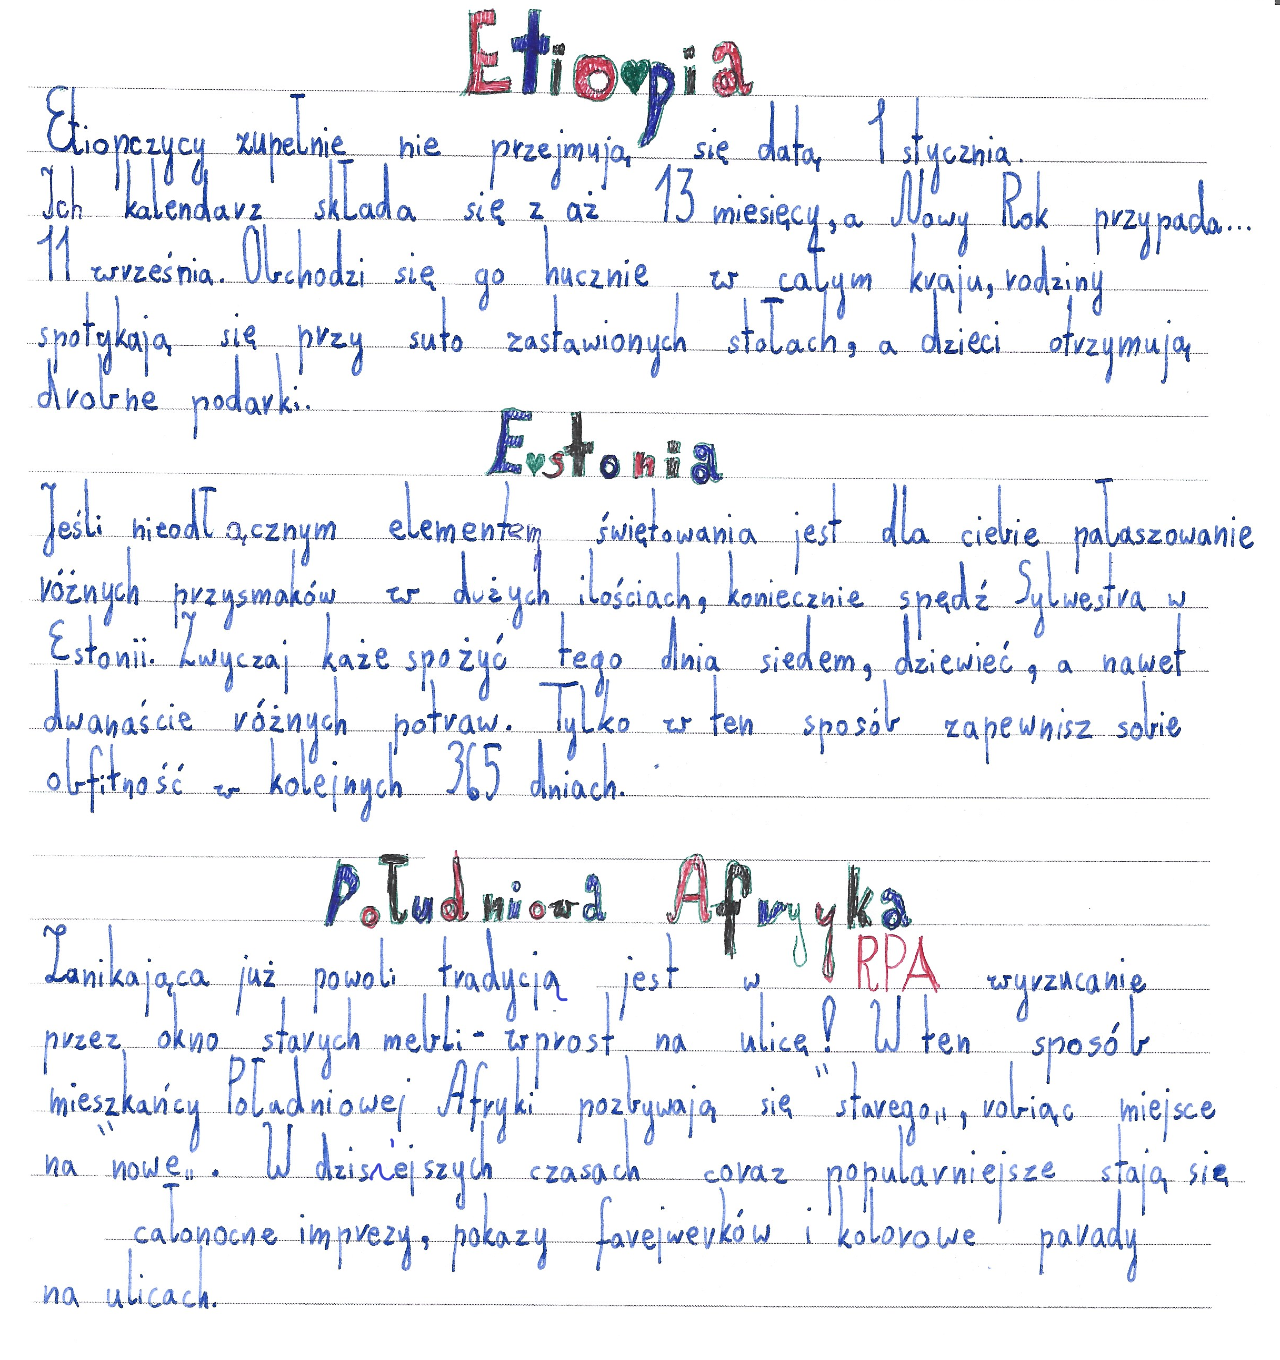 Etiopia
Etiopczycy zupełnie nie przejmują się datą 1 stycznia.
Ich kalendarz składa się z aż 13 miesięcy, a Nowy Rok przypada...
11 września. Obchodzi się go hucznie w całym kraju, rodziny
spotykają się przy suto zastawionych stołach, a dzieci otrzymują
drobne podarki.
Estonia
Jeśli nieodłącznym elementem świętowania jest dla ciebie pałaszowanie
różnych przysmaków w dużych ilościach, koniecznie spędź Sylwestra w
Estonii. Zwyczaj każe spożyć tego dnia siedem, dziewieć, a nawet
dwanaście różnych potraw. Tylko w ten sposób zapewnisz sobie
obfitność w kolejnych 365 dniach.
Południowa Afryka
Zanikająca już powoli tradycją jest w RPA wyrzucanie
przez okno starych mebli - wprost na ulicę! W ten sposób
mieszkańcy Południowej Afryki pozbywają się "starego„, robiąc miejsce
na "nowe„. W dzisiejszych czasach coraz popularniejsze stają się
całonocne imprezy, pokazy farejwerków i kolorowe parady
na ulicach.